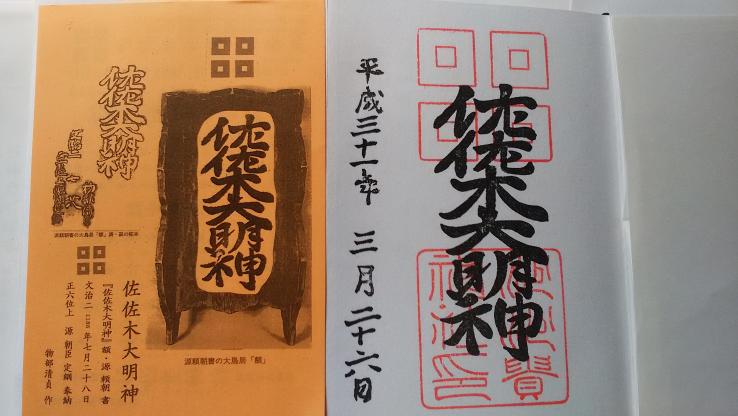 佐佐木大明神
佐佐木大明神
源頼朝書の大鳥居「額」
佐佐木大明神
『佐佐木大明神』額・源頼朝書
文治二1186年七月二十八日
正六位上 源朝臣定綱奉納
物部清貞作
佐佐木大明神
平成三十一年 三月二十六日